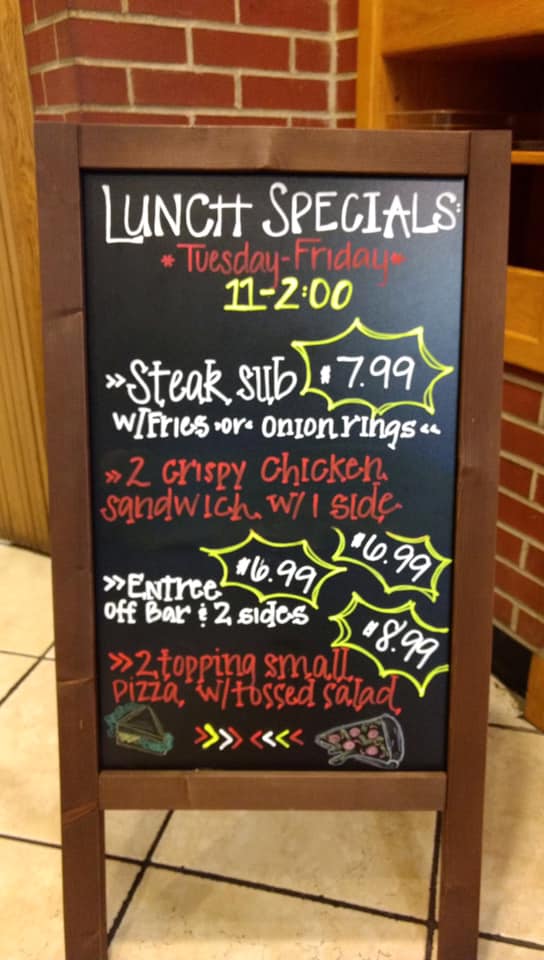 LUNCH SPECIALS:
*Tuesday-Friday*
11-2:00
»Steak sub $7.99
w/Fries •or• onion rings «
»2 crispy chicken
sandwich w/1 side
$6.99
»Entree $6.99
off Bar & 2 sides
$8.99
»2 topping small
pizza w/tossed salad
»»»«««